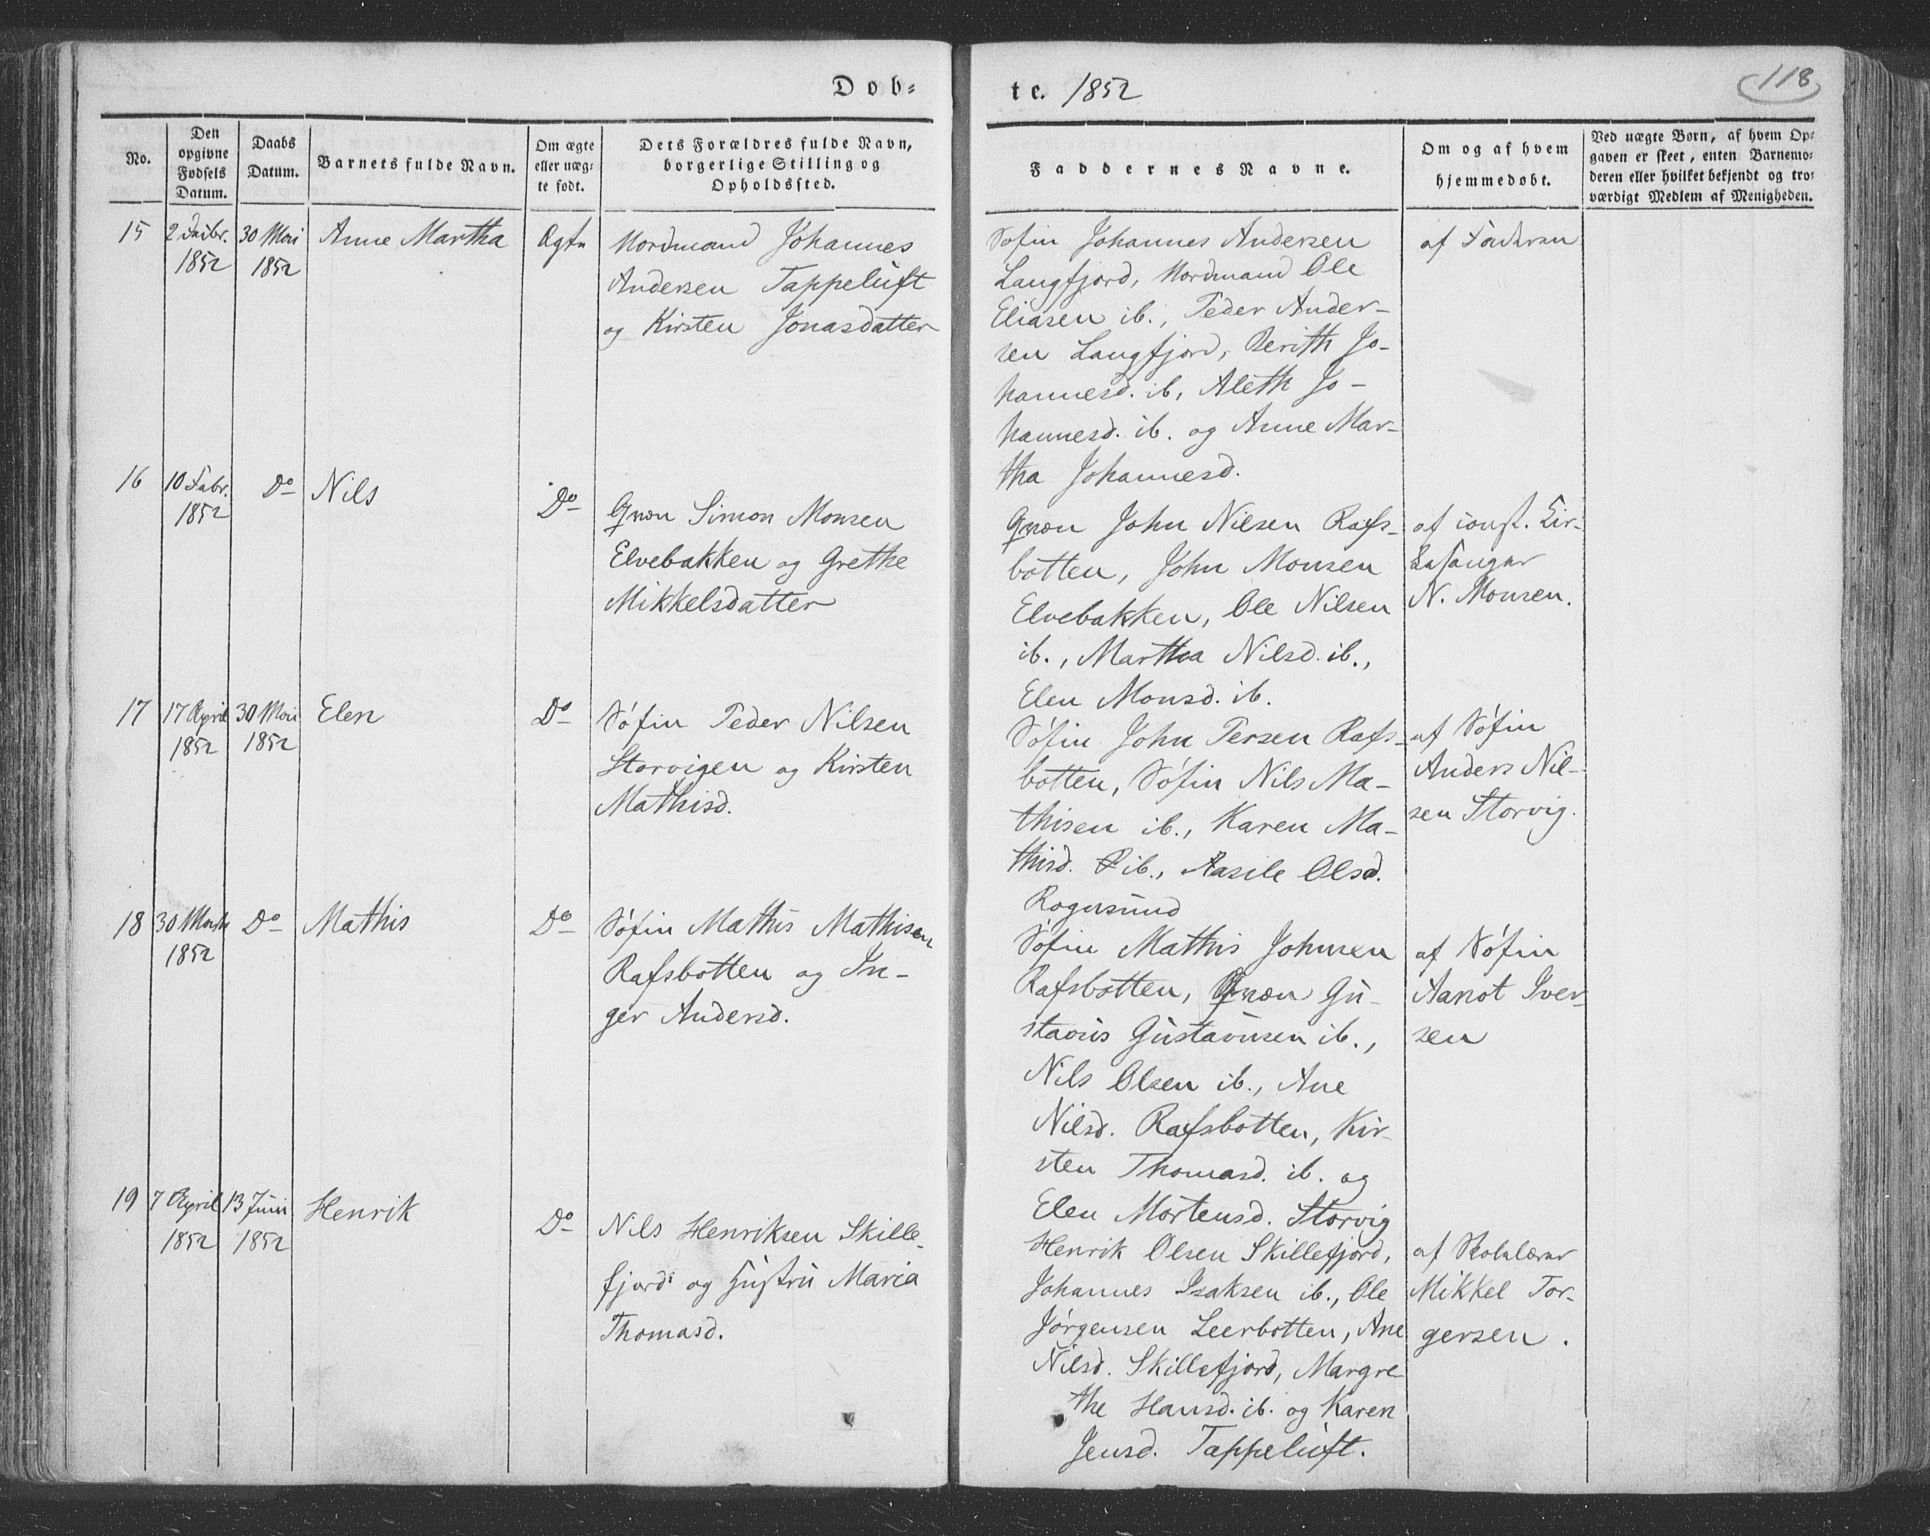 Dob=
te. 1852
118
No.
Den
opgivne
Fødsels
Datum.
Daabs
Datum.
Barnets fulde Navn.
Om ægte
eller uæg-
te født.
Dets Forældres fulde Navn,
borgerlige Stilling og
Opholdssted.
Faddernes Navne.
Om og af hvem
hjemmedøbt.
Ved uægte Børn, af hvem Op-
gaven er skeet, enten Barnemo-
deren eller hvilket bekjendt og tro-
værdigt Medlem af Menigheden.
15
1852
30 Mai
1852
Anne Martha
Ægte
Nordmand Johannes
Andersen Tappeluft
og Kirsten Jonasdatter
Søfin Johannes Andersen
Langfjord, Nordmand Ole
Eliasen ib., Peder Ander-
sen Langfjord, Berith Jo-
hannesd. ib, Aleth Jo-
hannesd. ib. og Anne Mar-
tha Johannesd.
af Faderen
16
10 Febr.
1852
Do
Nils
Do
Qvæn Simon Monsen
Elvebakken og Grethe
Mikkelsdatter
Qvæn John Nilsen Rafs-
botten, John Monsen
Elvebakken, Ole Nilsen
ib., Martha Nilsd. ib.,
Elen Monsd. ib.
af const. Kir-
kesanger
N. Monsen.
17
17 April
1852
30 Mai
1852
Elen
Do
Søfin Peder Nilsen
Storvigen og Kirsten
Mathisd.
Søfin John Persen Rafs-
botten, Søfin Nils Ma-
thisen ib., Karen Ma-
thisd. ib., Aasele Olsd.
Rognsund
af Søfin
Anders Nil-
sen Storvig.
18
30 Marts
1852
Do
Mathis
Do
Søfin Mathis Mathisen
Rafsbotten og In-
ger Andersd.
Søfin Mathis Johnsen
Rafsbotten, Qvæn Gu-
stavus Gustavusen ib.,
Nils Olsen ib., Ane
Nilsd. Rafsbotten, Kir-
sten Thomasd. ib. og
Elen Mortensd. Storvig
af Søfin
Aanot Iver-
sen
19
7 April
1852
13 Juni
1852
Henrik
Do
Nils Henriksen Skille-
fjord og Hustru Maria
Thomasd.
Henrik Olsen Skillefjord,
Johannes Isaksen ib., Ole
Jørgensen Leerbotten, Ane
Nilsd. Skillefjord, Margre-
the Hansd. ib. og Karen
Jensd. Tappeluft.
af Skolelærer
Mikkel Tor-
gersen.